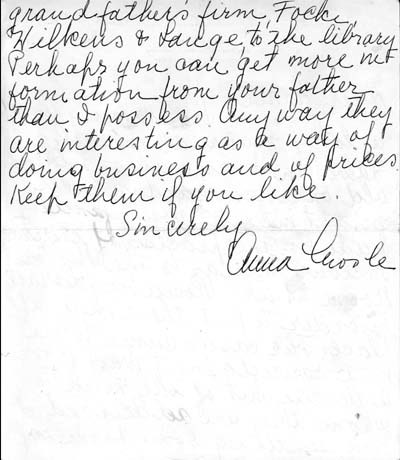 grandfather's firm, Focke,
Wilkens & Lange, to the library
Perhaps you can get more in-
formation from your father
than I possess. Anyway they
are interesting as a way of
doing business and of prices.
Keep them if you like.
Sincerely
Anna